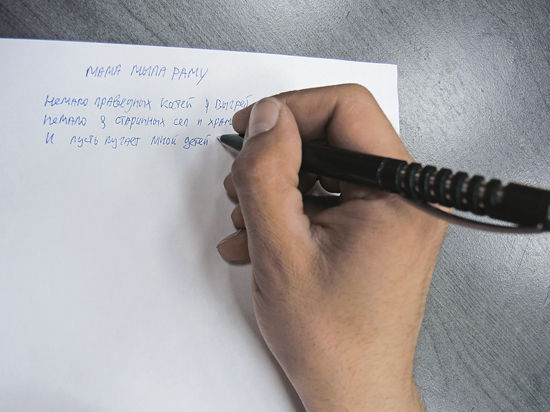 МАМА МЫЛА РАМУ
Немало праведных костей я выгрел
Немало я старинных сел и
И пусть пугает мной детей